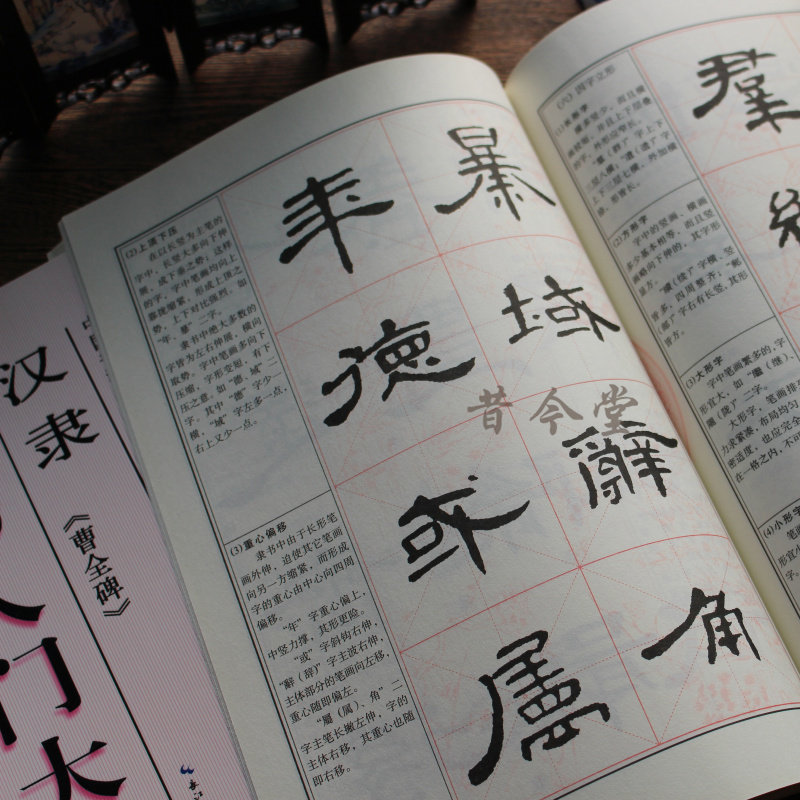 (2)上顶下压
在以长竖为主笔的
字中,长竖大多向下伸
展,成下垂之势;这样
的字,字中笔画均向上
靠拢缩紧,形成上顶之
势,上下对比强烈,如
“年、暴”二字。
隶书中绝大多数的
字皆为左右伸展,横向
取势。字中笔画多向下
压缩,字形变短,有下
压之意。如“德、域”二
字。其中“德”字少一
横,“域”字左多一点,
右上又少一点。
(3)重心偏移
隶书中由于长形笔
画外伸,迫使其它笔画
向另一方缩紧,而形成
字的重心由中心向四周
偏移。
“年”字重心偏上,
中竖力撑,其形更险。
“或”字斜钩右伸,
“辭(辞)”字主波右伸,
主体部分的笔画向左移,
重心随即偏左。
“屬(属)、角”二
字主笔长撇左伸,字的
主体右移,其重心也随
即右移。
年 暴
德 域
或 辭
屬 角
昔今堂
(六)因字立形
(1)长形字
(2)方形字
字中的竖画、横画
多少基本相等,而且竖
画略向下伸的,其字形
皆方。
(3)大形字
字中笔画繁多的,字
形宜大。如
大形字,笔画排
力求紧凑,布局均匀
密适度,也应完全
在一格之内,不可
(4)小形字
羣
汉隶
《曹全碑》
入门
大
长江